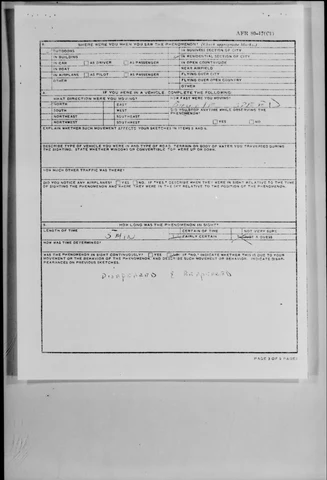 AFR 80-17(C1)
WHERE WERE YOU WHEN YOU SAW THE PHENOMENON?
OUTDOORS
IN BUSINESS SECTION OF CITY
IN BUILDING
IN RESIDENTIAL SECTION OF CITY
IN CAR AS DRIVER AS PASSENGER
IN OPEN COUNTRYSIDE
IN BOAT
NEAR AIRFIELD
IN AIRPLANE AS PILOT AS PASSENGER
FLYING OVER CITY
OTHER
FLYING OVER OPEN COUNTRY
OTHER
IF YOU WERE IN A VEHICLE, COMPLETE THE FOLLOWING:
WHAT DIRECTION WERE YOU MOVING?
HOW FAST WERE YOU MOVING?
NORTH EAST
SOUTH WEST
DID YOU STOP ANYTIME WHILE OBSERVING THE PHENOMENON?
NORTHEAST SOUTHEAST
NORTHWEST SOUTHWEST
YES NO
EXPLAIN WHETHER SUCH MOVEMENT AFFECTS YOUR SKETCHES IN ITEMS 5 AND 6.
DESCRIBE TYPE OF VEHICLE YOU WERE IN AND TYPE OF ROAD, TERRAIN OR BODY OF WATER YOU TRAVERSED DURING THE SIGHTING. STATE WHETHER WINDOWS OR CONVERTIBLE TOP WERE UP OR DOWN.
HOW MUCH OTHER TRAFFIC WAS THERE?
DID YOU NOTICE ANY AIRPLANES? YES NO. IF "YES" DESCRIBE WHEN THEY WERE IN SIGHT RELATIVE TO THE TIME OF SIGHTING THE PHENOMENON AND WHERE THEY WERE IN THE SKY RELATIVE TO THE POSITION OF THE PHENOMENON.
HOW LONG WAS THE PHENOMENON IN SIGHT?
LENGTH OF TIME
CERTAIN OF TIME
NOT VERY SURE
5 MIN
FAIRLY CERTAIN
JUST A GUESS
HOW WAS TIME DETERMINED?
WAS THE PHENOMENON IN SIGHT CONTINUOUSLY? YES NO. IF "NO" INDICATE WHETHER THIS IS DUE TO YOUR MOVEMENT OR THE BEHAVIOR OF THE PHENOMENON AND DESCRIBE SUCH MOVEMENT OR BEHAVIOR. INDICATE DISAPPEARANCES ON PREVIOUS SKETCHES.
Disappeared & Reappeared